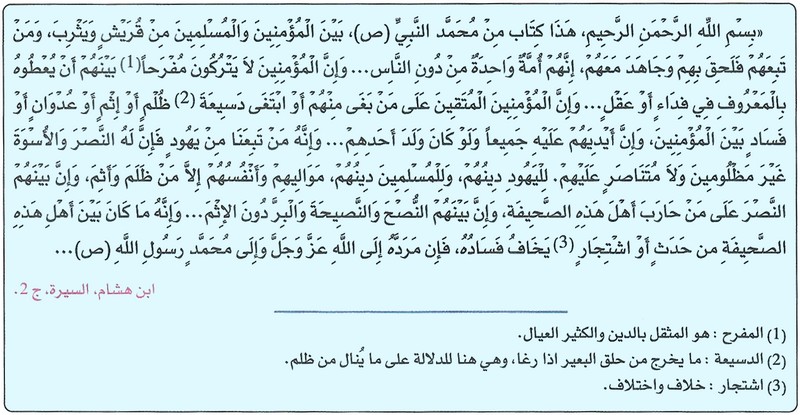 «بِسْمِ اللَّهِ الرَّحْمَنِ الرَّحِيمِ، هَذَا كِتَاب مِنْ مُحَمَّد النَّبِيِّ (ص)، بَيْنَ الْمُؤْمِنِينَ وَالْمُسْلِمِينَ مِنْ قُرَيْشٍ وَيَثْرِبَ، وَمَنْ
تَبِعَهُم فَلَحِقَ بِهِمْ وَجَاهَدَ مَعَهُمْ، إِنَّهُمْ أُمَّةٌ وَاحدَةٌ مِنْ دُونِ النَّاسِ... وَإِنَّ الْمُؤْمِنِينَ لاَ يَتْرُكُونَ مُفْرَحاً(1) بَيْنَهُمْ أَنْ يُعْطُوهُ
بِالْمَعْرُوفِ فِي فِدَاءٍ أَوْ عَقْلٍ... وَإِنَّ الْمُؤْمِنِينَ الْمُتَّقِينَ عَلَى مَنْ بَغَى مِنْهُمْ أَوْ ابْتَغَى دَسِيعَةَ (2) ظُلْمٍ أَوْ إِثْمٍ أَوْ عُدْوَانٍ أَوْ
فَسَادٍ بَيْنَ الْمُؤْمِنِينَ، وَإِنَّ أَيْدِيَهُمْ عَلَيْهِ جَمِيعاً وَلَوْ كَانَ وَلَدَ أَحَدِهِمْ... وَإِنَّهُ مَنْ تَبِعَنَا مِنْ يَهُودٍ فَإِنَّ لَهُ النَّصْرَ وَالأُسْوَةَ
غَيْرَ مَظْلُومِينَ وَلاَ مُتَنَاصَرٍ عَلَيْهِمْ. لِلْيَهُودِ دِينُهُمْ، وَلِلْمُسْلِمِينَ دِينُهُمْ، مَوَالِيهِمْ وَأَنْفُسُهُمْ إِلاَّ مَنْ ظَلَمَ وَأَثِمَ، وَإِنَّ بَيْنَهُمْ
النَّصْرَ عَلَى مَنْ حَارَبَ أَهْلَ هَذِهِ الصَّحِيفَةِ، وَإِنَّ بَيْنَهُمُ النُّصْحَ وَالنَّصِيحَةَ وَالْبِرَّ دُونَ الإِثْمِ... وَإِنَّهُ مَا كَانَ بَيْنَ أَهْلِ هَذِهِ
الصَّحِيفَةِ مِن حَدَثٍ أَوْ اشْتِجَارٍ (3) يَخَافُ فَسَادُهُ، فَإِن مَرَدَّهُ إِلَى اللَّهِ عَزَّ وَجَلَّ وَإِلَى مُحَمَّدٍ رَسُولِ اللَّهِ (ص)...
ابن هشام، السيرة، ج 2.
(1) المفرح : هو المثقل بالدين والكثير العيال.
(2) الدسيعة : ما يخرج من حلق البعير اذا رغا، وهي هنا للدلالة على ما يُنال من ظلم.
(3) اشتجار : خلاف واختلاف.